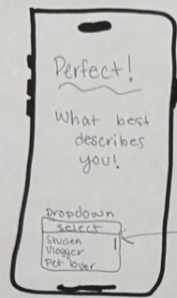 Perfect!
What best
describes
you!
Dropdown
Select
Studen
Vlogger
Pet lover